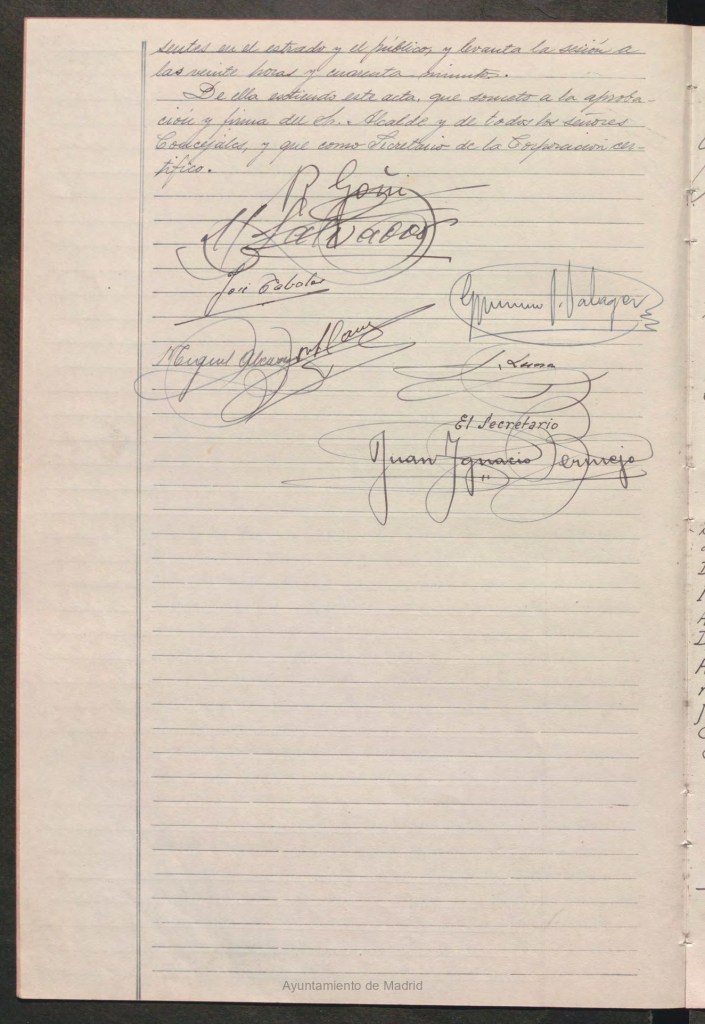 sentes en el estrado y el público, y levanta la sesión a
las veinte horas y cuarenta minutos.
De ella extiendo este acta, que someto a la aproba-
ción y firma del Sr. Alcalde y de todos los señores
Concejales, y que como Secretario de la Corporación cer-
tifico.
R. Goñi
Salvador
José
Miguel
J. Luna
El Secretario
Juan Ignacio Bermejo
Ayuntamiento de Madrid